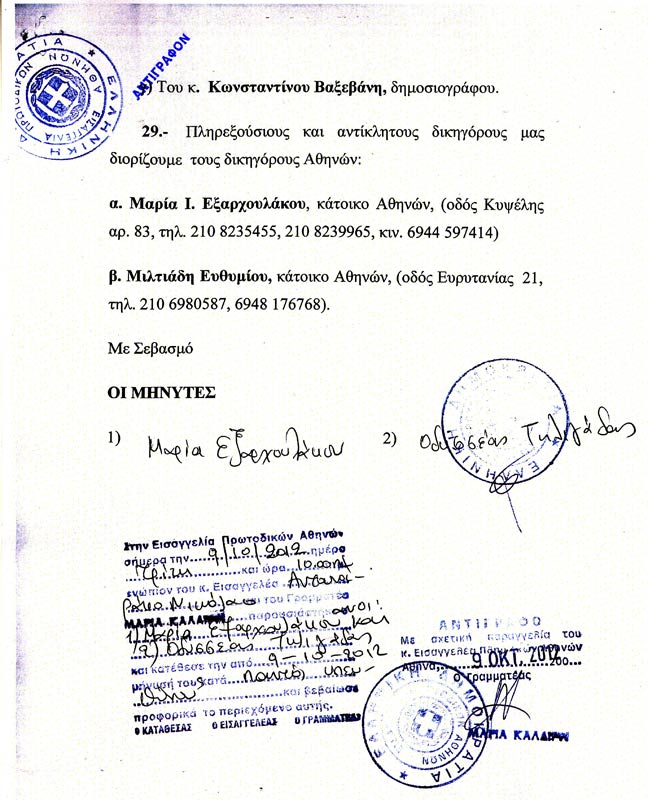 ΑΝΤΙΓΡΑΦΟΝ
Του κ. Κωνσταντίνου Βαξεβάνη, δημοσιογράφου.
29.- Πληρεξούσιους και αντίκλητους δικηγόρους μας
διορίζουμε τους δικηγόρους Αθηνών:
α. Μαρία Ι. Εξαρχουλάκου, κάτοικο Αθηνών, (οδός Κυψέλης
αρ. 83, τηλ. 210 8235455, 210 8239965, κιν. 6944 597414)
β. Μιλτιάδη Ευθυμίου, κάτοικο Αθηνών, (οδός Ευρυτανίας 21,
τηλ. 210 6980587, 6948 176768).
Με Σεβασμό
ΟΙ ΜΗΝΥΤΕΣ
1) Μαρία Εξαρχουλάκου 2) Οδυσσέας Τηλιγάδας
Στην Εισαγγελία Πρωτοδικών Αθηνών
σήμερα την 9/10/2012 ημέρα
Τρίτη και ώρα 10.00
ενώπιον του κ. Εισαγγελέα
και του Γραμματέα
ΜΑΡΙΑ ΚΑΛΔΙΡΗ
1) Μαρία Εξαρχουλάκου και
2) Οδυσσέας Τηλιγάδας
και κατέθεσε την από 9-10-2012
μήνυσή του κατά παντός υπευ-
θύνου και βεβαίωσε
προφορικά το περιεχόμενο αυτής.
Ο ΚΑΤΑΘΕΣΑΣ Ο ΕΙΣΑΓΓΕΛΕΑΣ Ο ΓΡΑΜΜΑΤΕΑΣ
ΑΝΤΙΓΡΑΦΟ
Με σχετική παραγγελία του
κ. Εισαγγελέα Πλημ/κών Αθηνών
Αθήνα, 9 ΟΚΤ. 2012 200
Ο Γραμματέας
ΕΛΛΗΝΙΚΗ ΔΗΜΟΚΡΑΤΙΑ